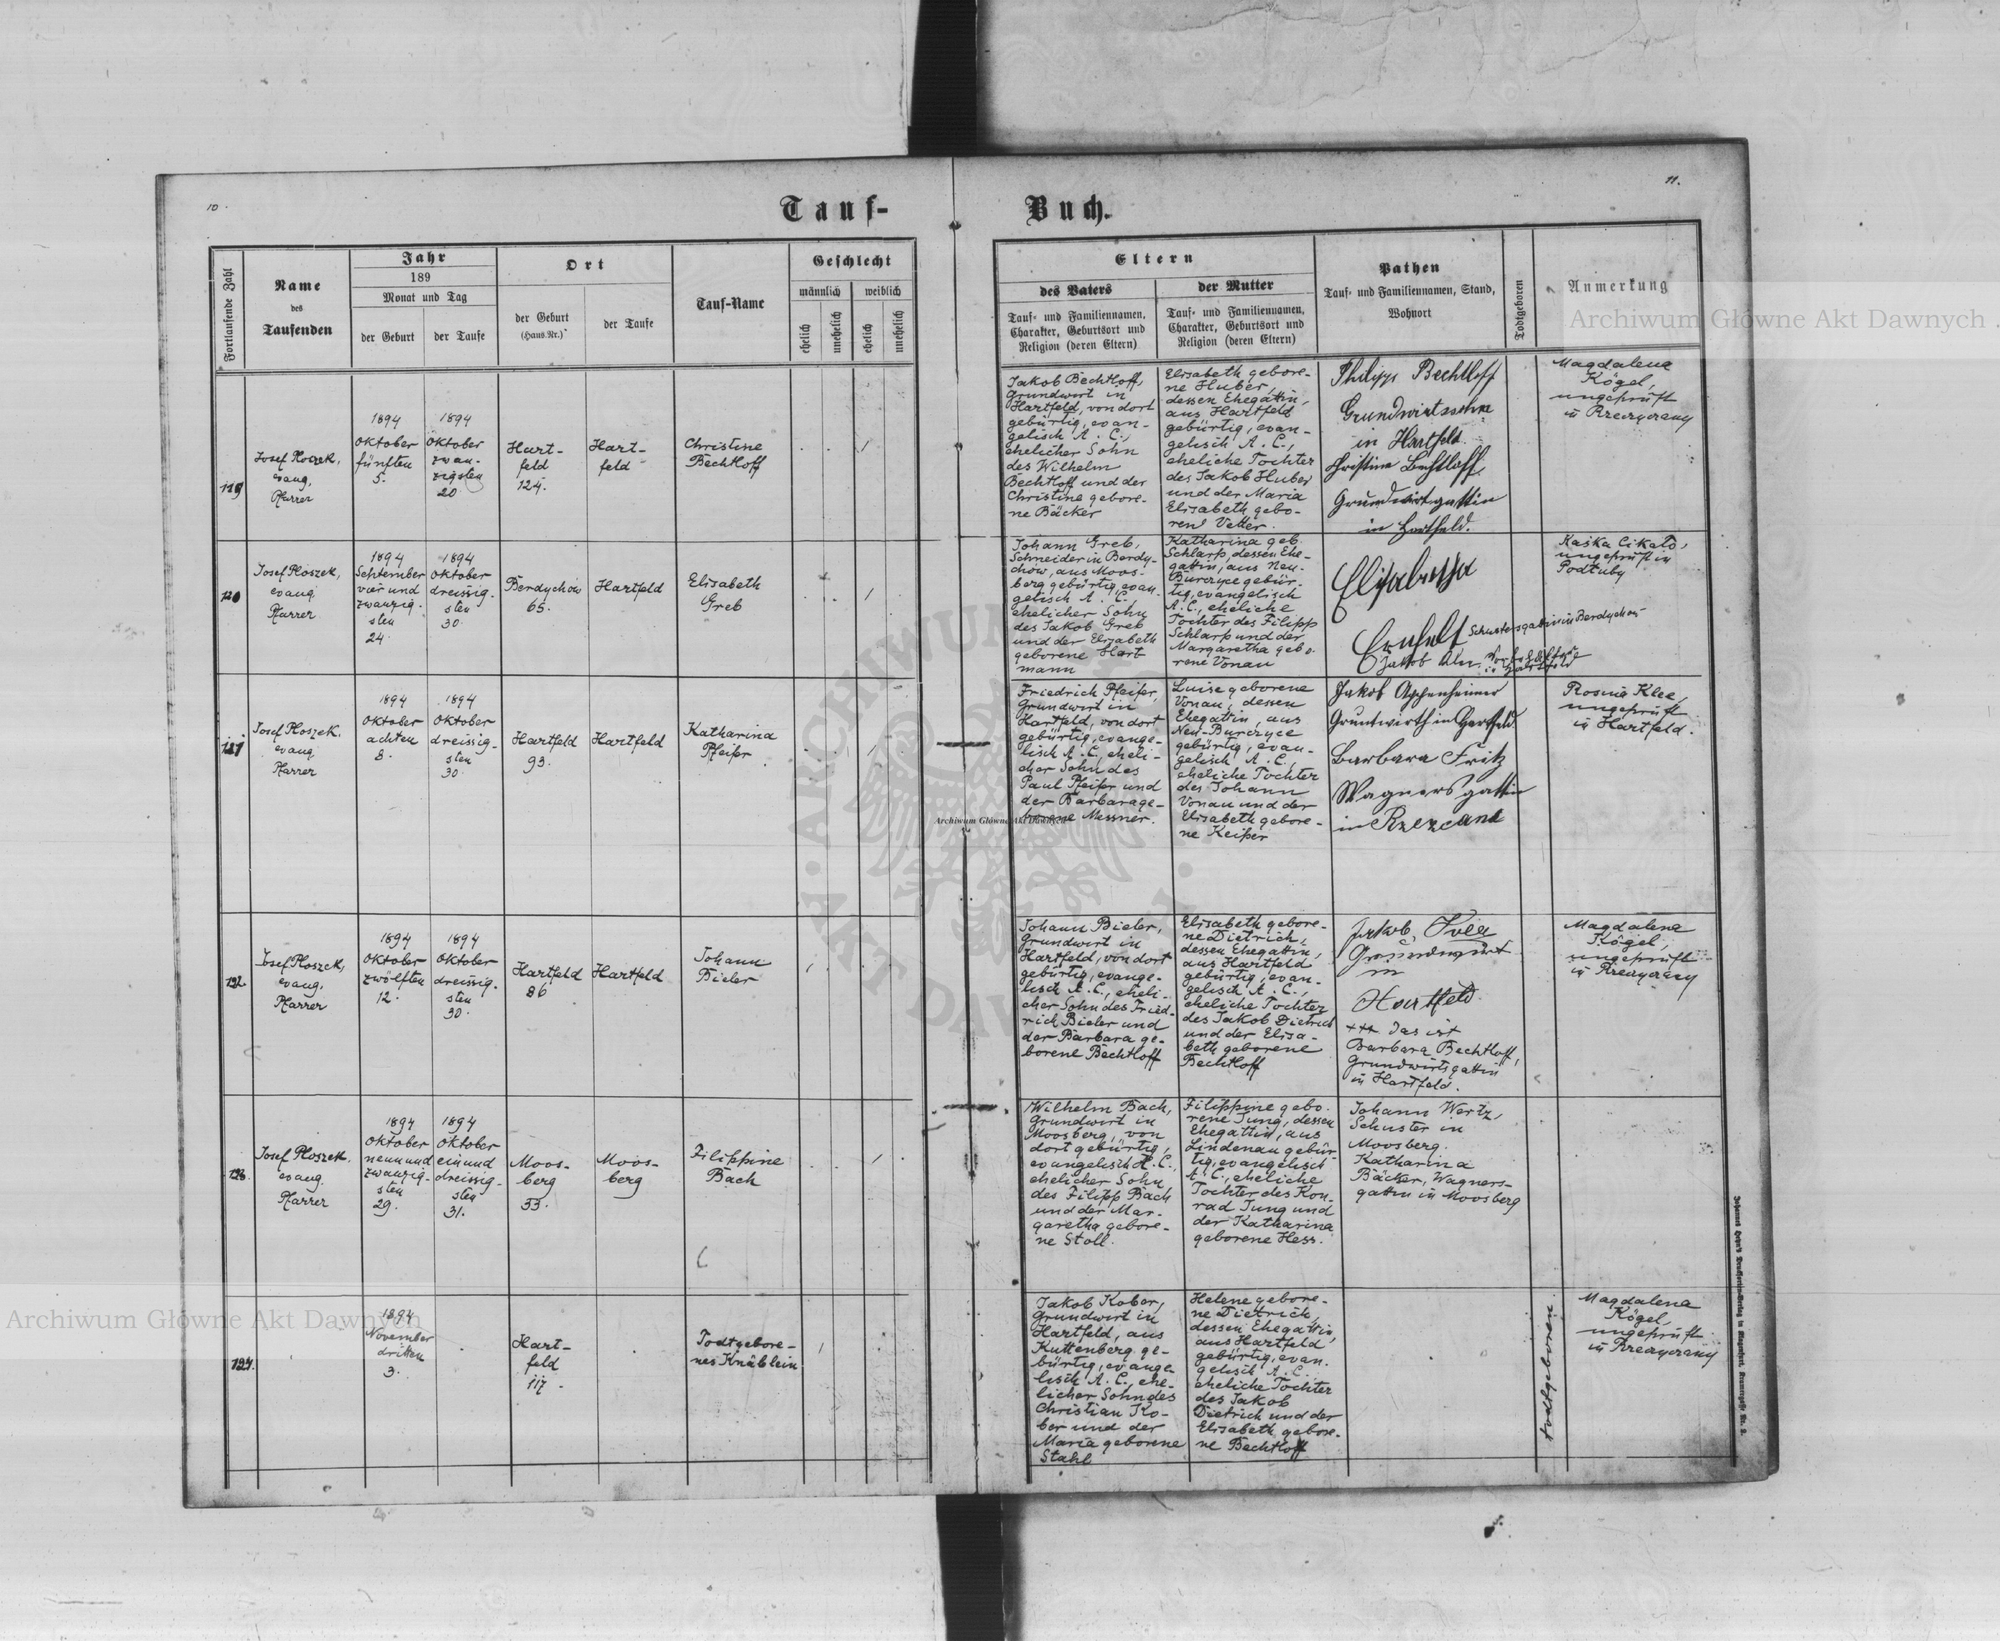 10.
11.
Tauf-
Buch.
Fortlaufende Zahl
Name
des
Taufenden
Jahr
189
Monat und Tag
der Geburt
der Taufe
Ort
der Geburt
(Haus-Nr.)
der Taufe
Tauf-Name
Geschlecht
männlich
weiblich
ehelich
unehelich
ehelich
unehelich
Eltern
des Vaters
Tauf- und Familiennamen,
Charakter, Geburtsort und
Religion (deren Eltern)
der Mutter
Tauf- und Familiennamen,
Charakter, Geburtsort und
Religion (deren Eltern)
Pathen
Tauf- und Familiennamen, Stand,
Wohnort
Todtgeboren
Anmerkung
119
Josef Ploszek,
evang.
Pfarrer
1894
Oktober
fünften
5.
1894
Oktober
zwan-
zigsten
20
Hart-
feld
124.
Hart-
feld
Christine
Bechtloff
Jakob Bechtloff,
Grundwirt in
Hartfeld, von dort
gebürtig, evan-
gelisch A. C.,
ehelicher Sohn
des Wilhelm
Bechtloff und der
Christine gebore-
ne Bäcker
Elisabeth gebore-
ne Huber,
dessen Ehegattin,
aus Hartfeld
gebürtig, evan-
gelisch A. C.,
eheliche Tochter
des Jakob Huber
und der Maria
Elisabeth gebo-
rene Vetter.
Philipp Bechtloff
Grundwirtssohn
in Hartfeld.
Christine Bechtloff,
Grundwirtsgattin
in Hartfeld.
Magdalena
Kögel,
ungeprüft
in Rzeczyczany
120
Josef Ploszek,
evang.
Pfarrer
1894
September
vier und
zwanzig-
sten
24.
1894
Oktober
dreissig-
sten
30.
Berdychów
65.
Hartfeld
Elisabeth
Greb
Johann Greb,
Schneider in Berdy-
chow, aus Moos-
berg gebürtig, evan-
gelisch A. C.,
ehelicher Sohn
des Jakob Greb
und der Elisabeth
geborene Hart
mann
Katharina geb.
Schlarp, dessen Ehe-
gattin, aus Neu-
Burczyce gebür-
tig, evangelisch
A. C., eheliche
Tochter des Filipp
Schlarp und der
Margaretha gebo-
rene Vonau
Schustersgattin in Berdychow
Jakob
in Hartfeld
Kaśka Cikało,
ungeprüft in
Podłuby
121
Josef Ploszek.
evang.
Pfarrer
1894
Oktober
achten
8.
1894
Oktober
dreissig-
sten
30.
Hartfeld
93.
Hartfeld
Katharina
Pfeifer
Friedrich Pfeifer,
Grundwirt in
Hartfeld, von dort
gebürtig, evange-
lisch A. C., eheli-
cher Sohn des
Paul Pfeifer und
der Barbara ge-
borene Messner.
Luise geborene
Vonau, dessen
Ehegattin, aus
Neu-Burczyce
gebürtig, evan-
gelisch A. C.,
eheliche Tochter
des Johann
Vonau und der
Elisabeth gebore-
ne Keiper
Jakob Oppenheimer
Gruntwirth in Hartfeld
Barbara Fritz
Wagners gattin
in
Rosina Klee,
ungeprüft
in Hartfeld.
122.
Josef Ploszek,
evang.
Pfarrer
1894
Oktober
zwölften
12.
1894
Oktober
dreissig-
sten
30.
Hartfeld
86
Hartfeld
Johann
Bieler
Johann Bieler,
Grundwirt in
Hartfeld, von dort
gebürtig, evange-
lisch A. C., eheli-
cher Sohn des Fried-
rich Bieler und
der Barbara ge-
borene Bechtloff
Elisabeth gebore-
ne Dietrich,
dessen Ehegattin,
aus Hartfeld
gebürtig, evan-
gelisch A. C.,
eheliche Tochter
des Jakob Dietrich
und der Elisa-
beth geborene
Bechtloff
Jakob
Grundwirt
in
Hartfeld.
+++ das ist
Barbara Bechtloff,
Grundwirtsgattin
in Hartfeld.
Magdalena
Kögel,
ungeprüft
in Rzeczyczany
123.
Josef Ploszek.
evang.
Pfarrer
1894
Oktober
neunund
zwanzig-
sten
29.
1894
Oktober
einund
dreissig-
sten
31.
Moos-
berg
33.
Moos-
berg
Filippine
Bach
Wilhelm Bach,
Grundwirt in
Moosberg, von
dort gebürtig,
evangelisch A. C.,
ehelicher Sohn
des Filipp Bach
und der Mar-
garetha gebore-
ne Stoll.
Filippine gebo-
rene Jung, dessen
Ehegattin, aus
Lindenau gebür-
tig, evangelisch
A. C., eheliche
Tochter des Kon-
rad Jung und
der Katharina
geborene Hess.
Johann Wertz,
Schuster in
Moosberg.
Katharina
Bäcker, Wagners-
gattin in Moosberg
124.
1894
November
dritten
3.
Hart-
feld
117.
Todtgebore-
nes Knäblein
Jakob Kober,
Grundwirt in
Hartfeld, aus
Kuttenberg ge-
bürtig, evange-
lisch A. C., ehe-
licher Sohn des
Christian Ko-
ber und der
Maria geborene
Stahl
Helene gebore-
ne Dietrich,
dessen Ehegattin,
aus Hartfeld
gebürtig, evan-
gelisch A. C.
eheliche Tochter
des Jakob
Dietrich und der
Elisabeth gebore-
ne Bechtloff
todtgeboren
Magdalena
Kögel,
ungeprüft
in Rzeczyczany
Archiwum Główne Akt Dawnych
Archiwum Główne Akt Dawnych
Archiwum Główne Akt Dawnych